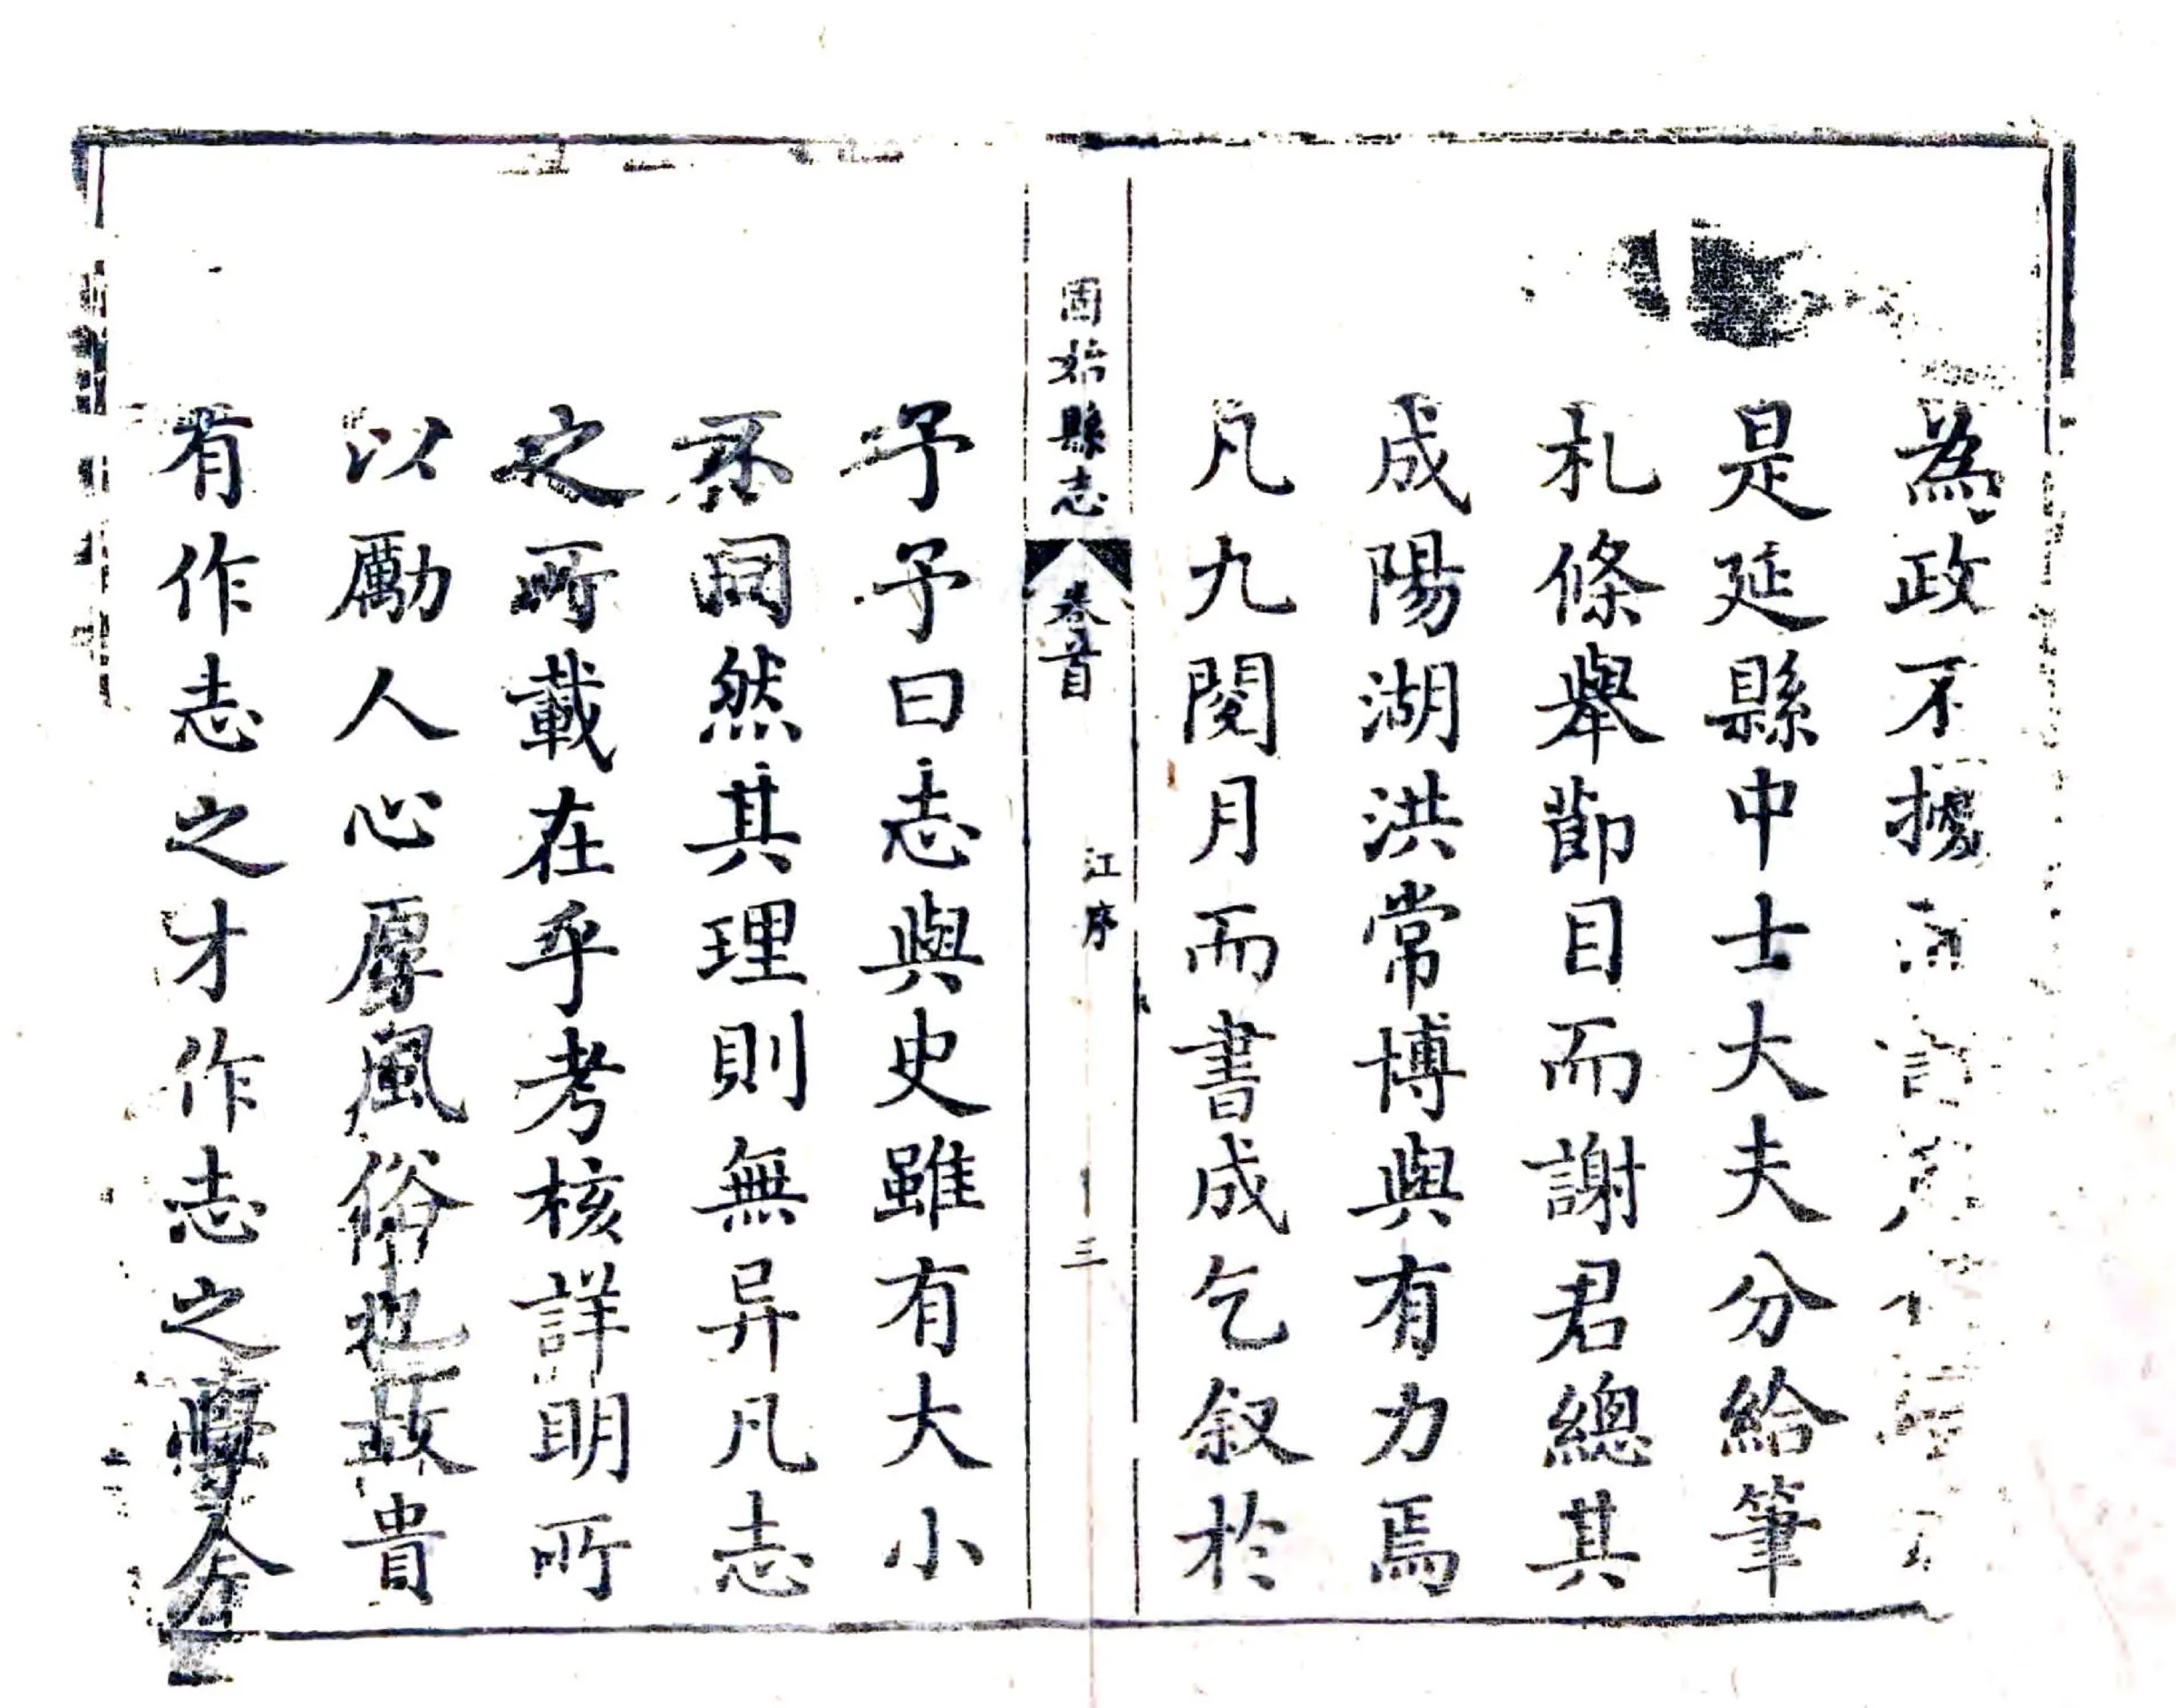 為政不擾
是延縣中士大夫分給筆
札條舉節目而謝君總其
成陽湖洪常博與有力焉
凡九閱月而書成乞叙於
固始縣志
卷首
江序
三
予予曰志與史雖有大小
不同然其理則無异凡志
之所載在乎考核詳明所
以勵人心厚風俗也故貴
有作志之才作志之學